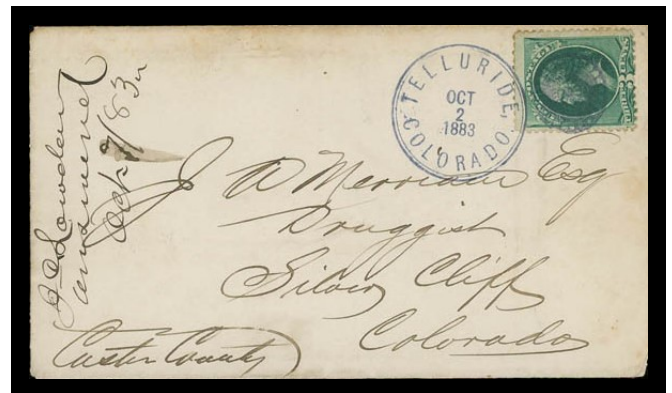 TELLURIDE,
COLORADO.
OCT
2
1883
J A Merriam Esq
Druggist
Silver Cliff
Colorado
Custer County
answered
Oct